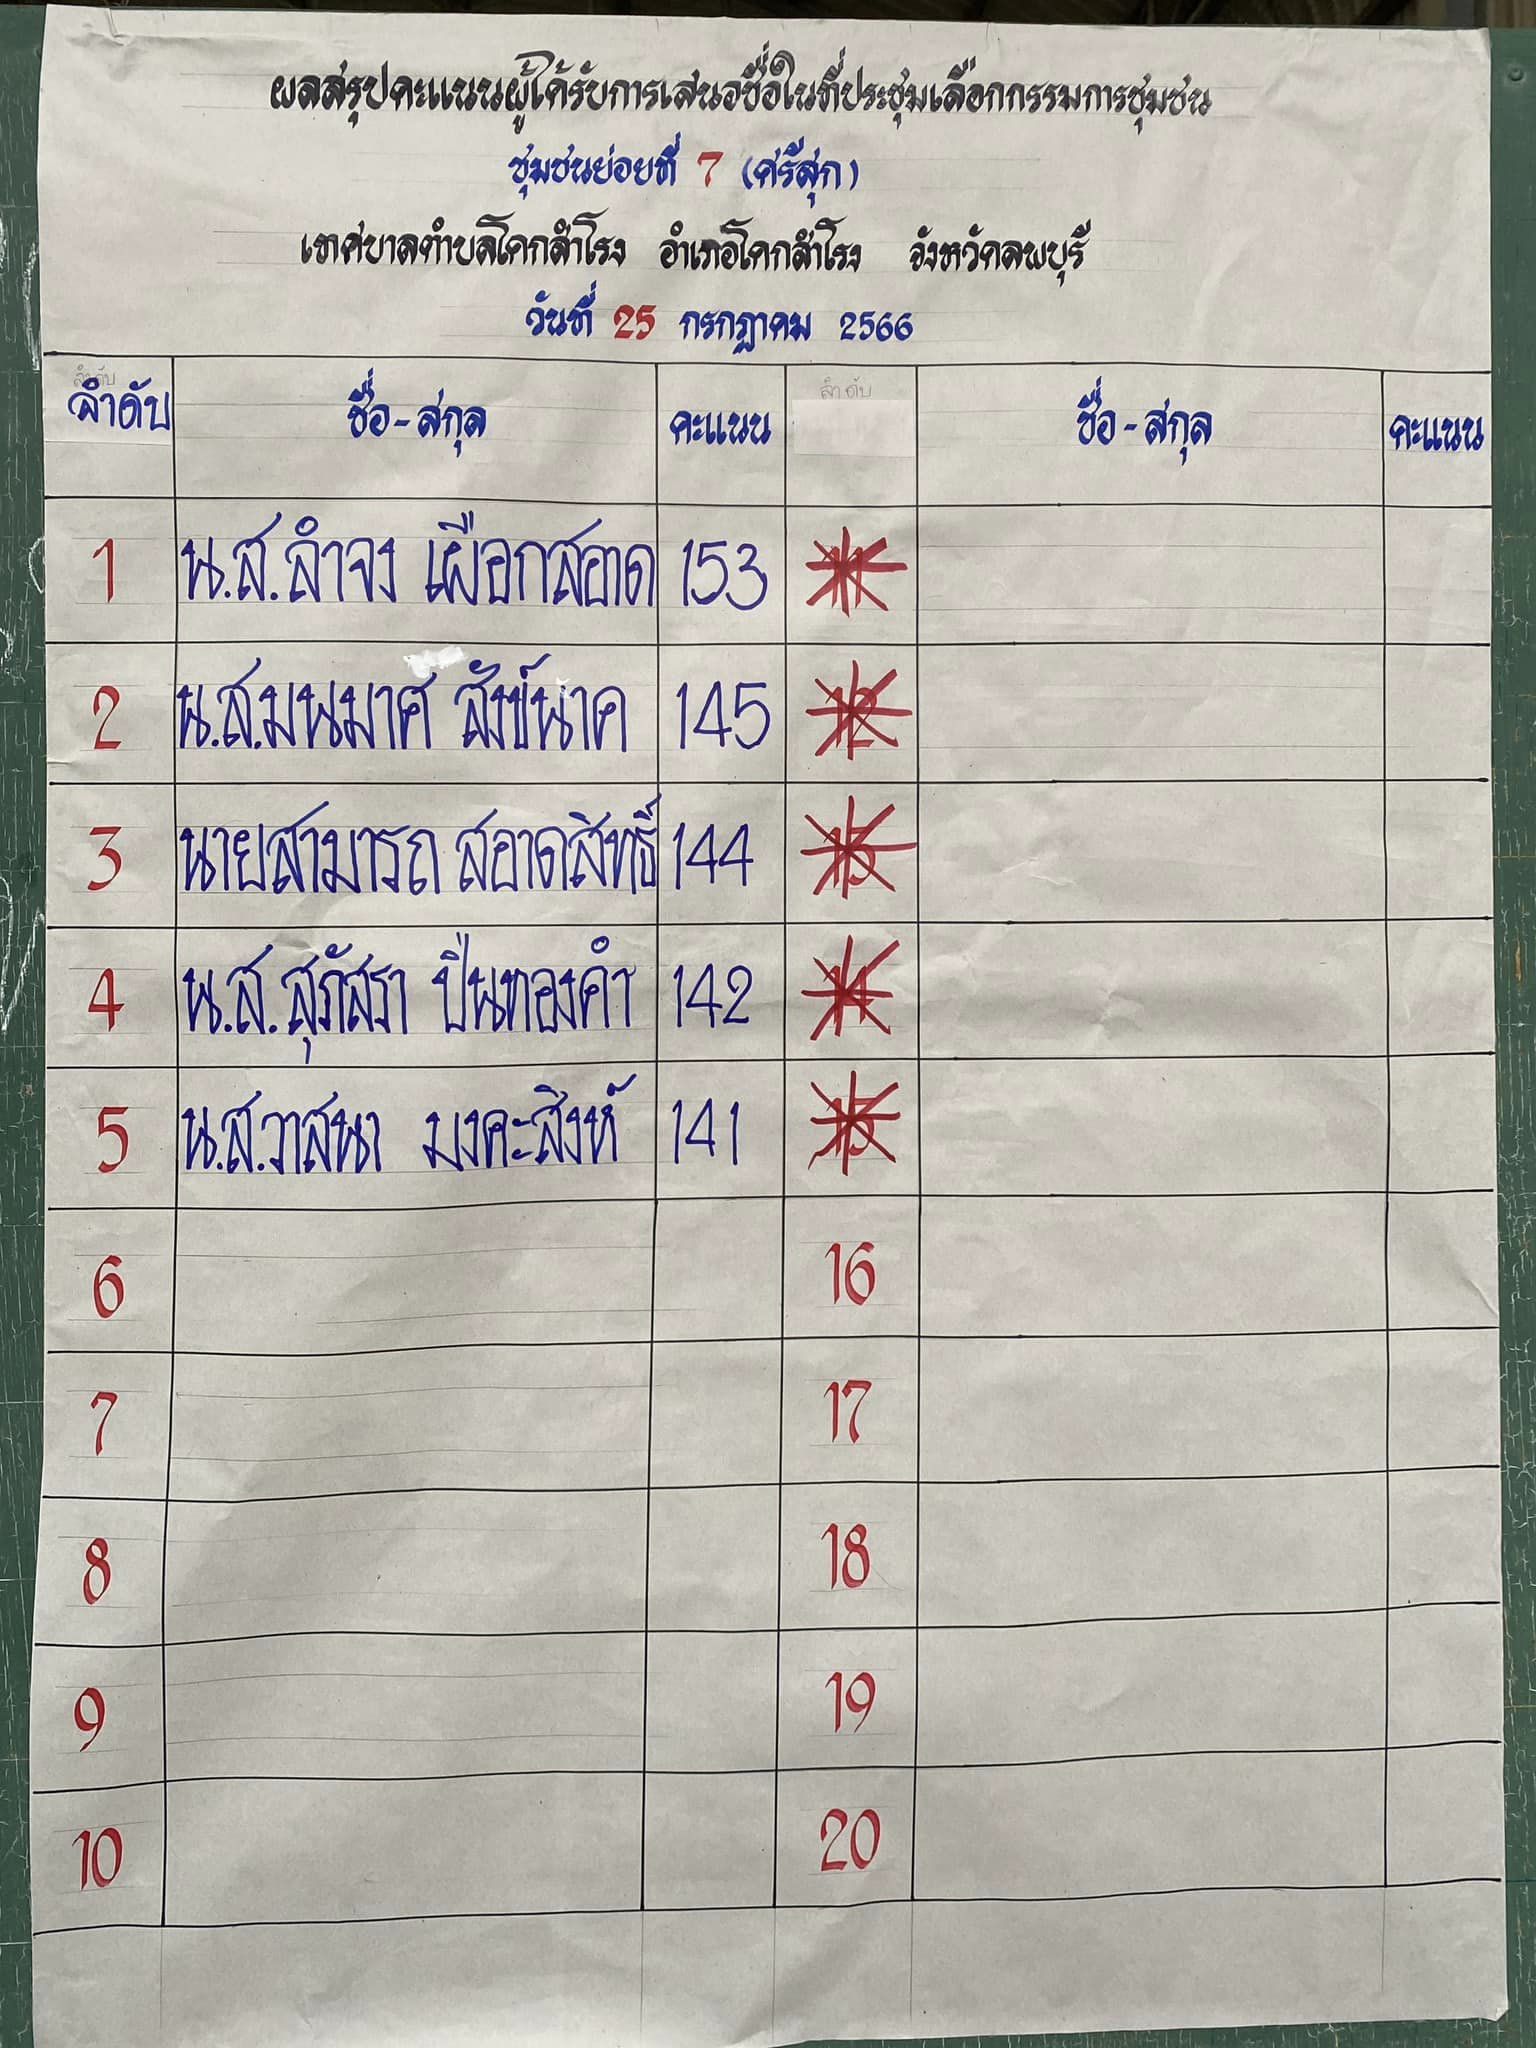 ผลสรุปคะแนนผู้ได้รับการเสนอชื่อในที่ประชุมเลือกกรรมการชุมชน
ชุมชนย่อยที่ 7 (ศรีสุก)
เทศบาลตำบลโคกสำโรง อำเภอโคกสำโรง จังหวัดลพบุรี
วันที่ 25 กรกฎาคม 2566
ลำดับ ลำดับ
ลำดับ ชื่อ-สกุล คะแนน ชื่อ-สกุล คะแนน
1 น.ส.ลำจง เผือกสอาด 153 11
2 น.ส.มนมาศ สังข์นาค 145 12
3 นายสามารถ สอาดสิทธิ์ 144 13
4 น.ส.สุภัสรา ปิ่นทองคำ 142 14
5 น.ส.วาสนา มงคะสิงห์ 141 15
6 16
7 17
8 18
9 19
10 20